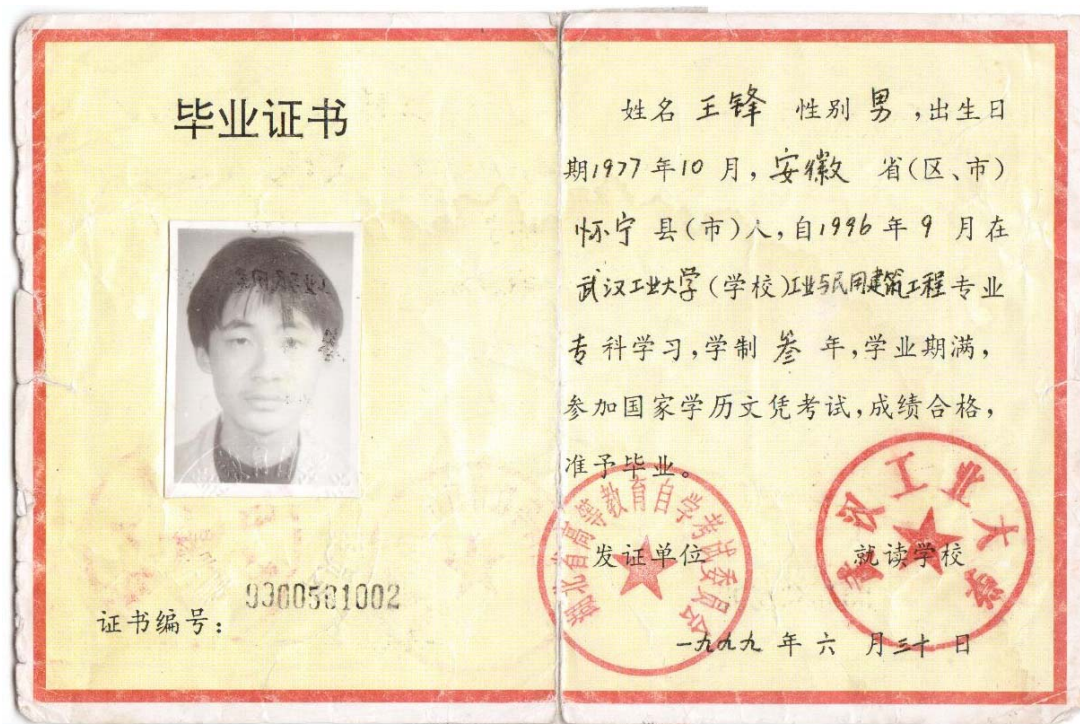 毕业证书
证书编号：
姓名 王锋 性别 男，出生日
期1977年10月，安徽 省(区、市)
怀宁 县(市)人，自1996年9月在
武汉工业大学(学校)工业与民用建筑工程专业
专科学习，学制 叁 年，学业期满，
参加国家学历文凭考试，成绩合格，
准予毕业。
发证单位 就读学校
湖北省高等教育自学考试委员会
武汉工业大学
一九九九年六月三十日